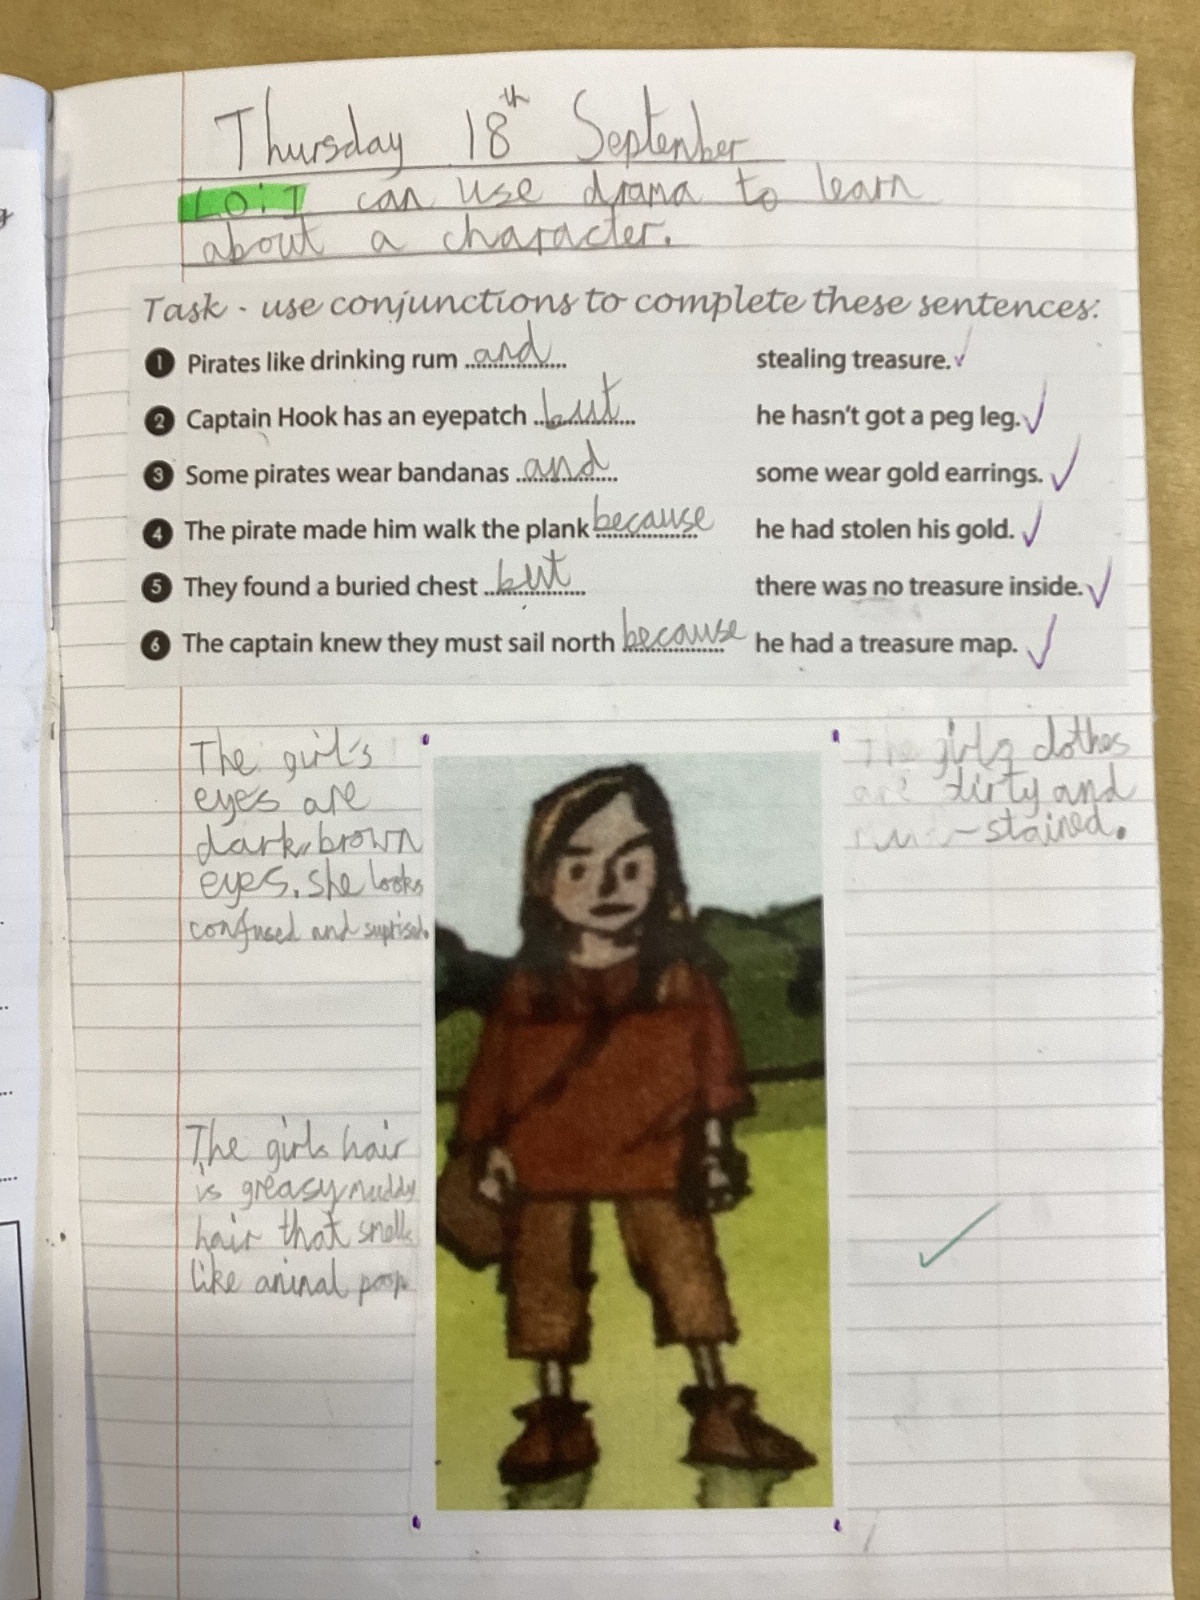 Thursday 18th September
LO: I can use drama to learn
about a character.
Task - use conjunctions to complete these sentences:
1 Pirates like drinking rum and stealing treasure.
2 Captain Hook has an eyepatch but he hasn't got a peg leg.
3 Some pirates wear bandanas and some wear gold earrings.
4 The pirate made him walk the plank because he had stolen his gold.
5 They found a buried chest but there was no treasure inside.
6 The captain knew they must sail north because he had a treasure map.
The girl's
eyes are
dark, brown
eyes. she looks
confused and suprised.
The girls clothes
are dirty and
mud-stained.
The girls hair
is greasy, muddy
hair that smells
like animal poop